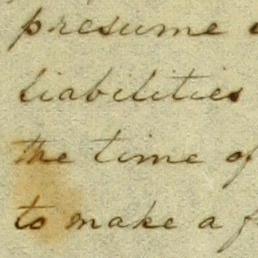 presume
liabilities
the time of
to make a